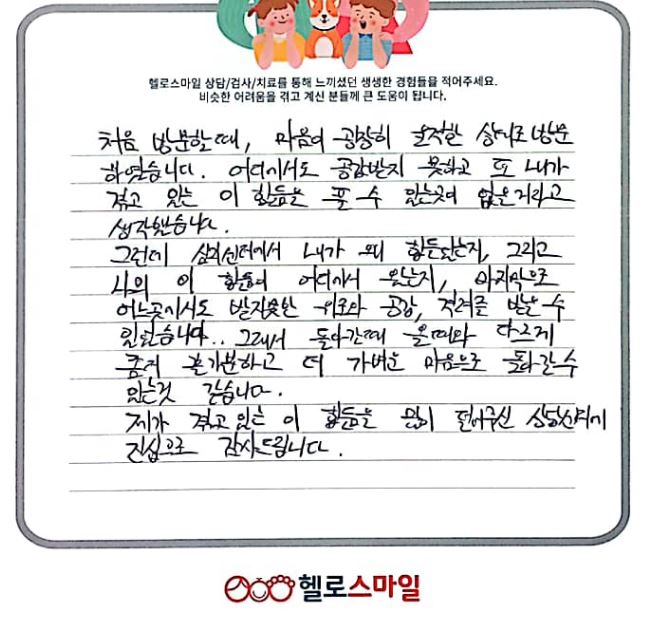 헬로스마일 상담/검사/치료를 통해 느끼셨던 생생한 경험들을 적어주세요.
비슷한 어려움을 겪고 계신 분들께 큰 도움이 됩니다.
처음 방문할때, 마음이 굉장히 울적한 상태로 방문
하였습니다. 어디에서도 공감받지 못하고 또 내가
겪고 있는 이 힘듦을 풀 수 있는곳이 없을거라고
생각했습니다.
그런데 심리센터에서 내가 왜 힘든었는지, 그리고
나의 이 힘듦이 어디에서 왔는지, 마지막으로
어느곳에서도 받지못한 위로와 공감, 격려를 받을 수
있었습니다.. 그래서 돌아갈때 올때와 다르게
좀더 홀가분하고 더 가벼운 마음으로 돌아갈수
있는것 같습니다.
제가 겪고있는 이 힘듦을 많이 덜어주신 상담선생님께
진심으로 감사드립니다.
헬로스마일